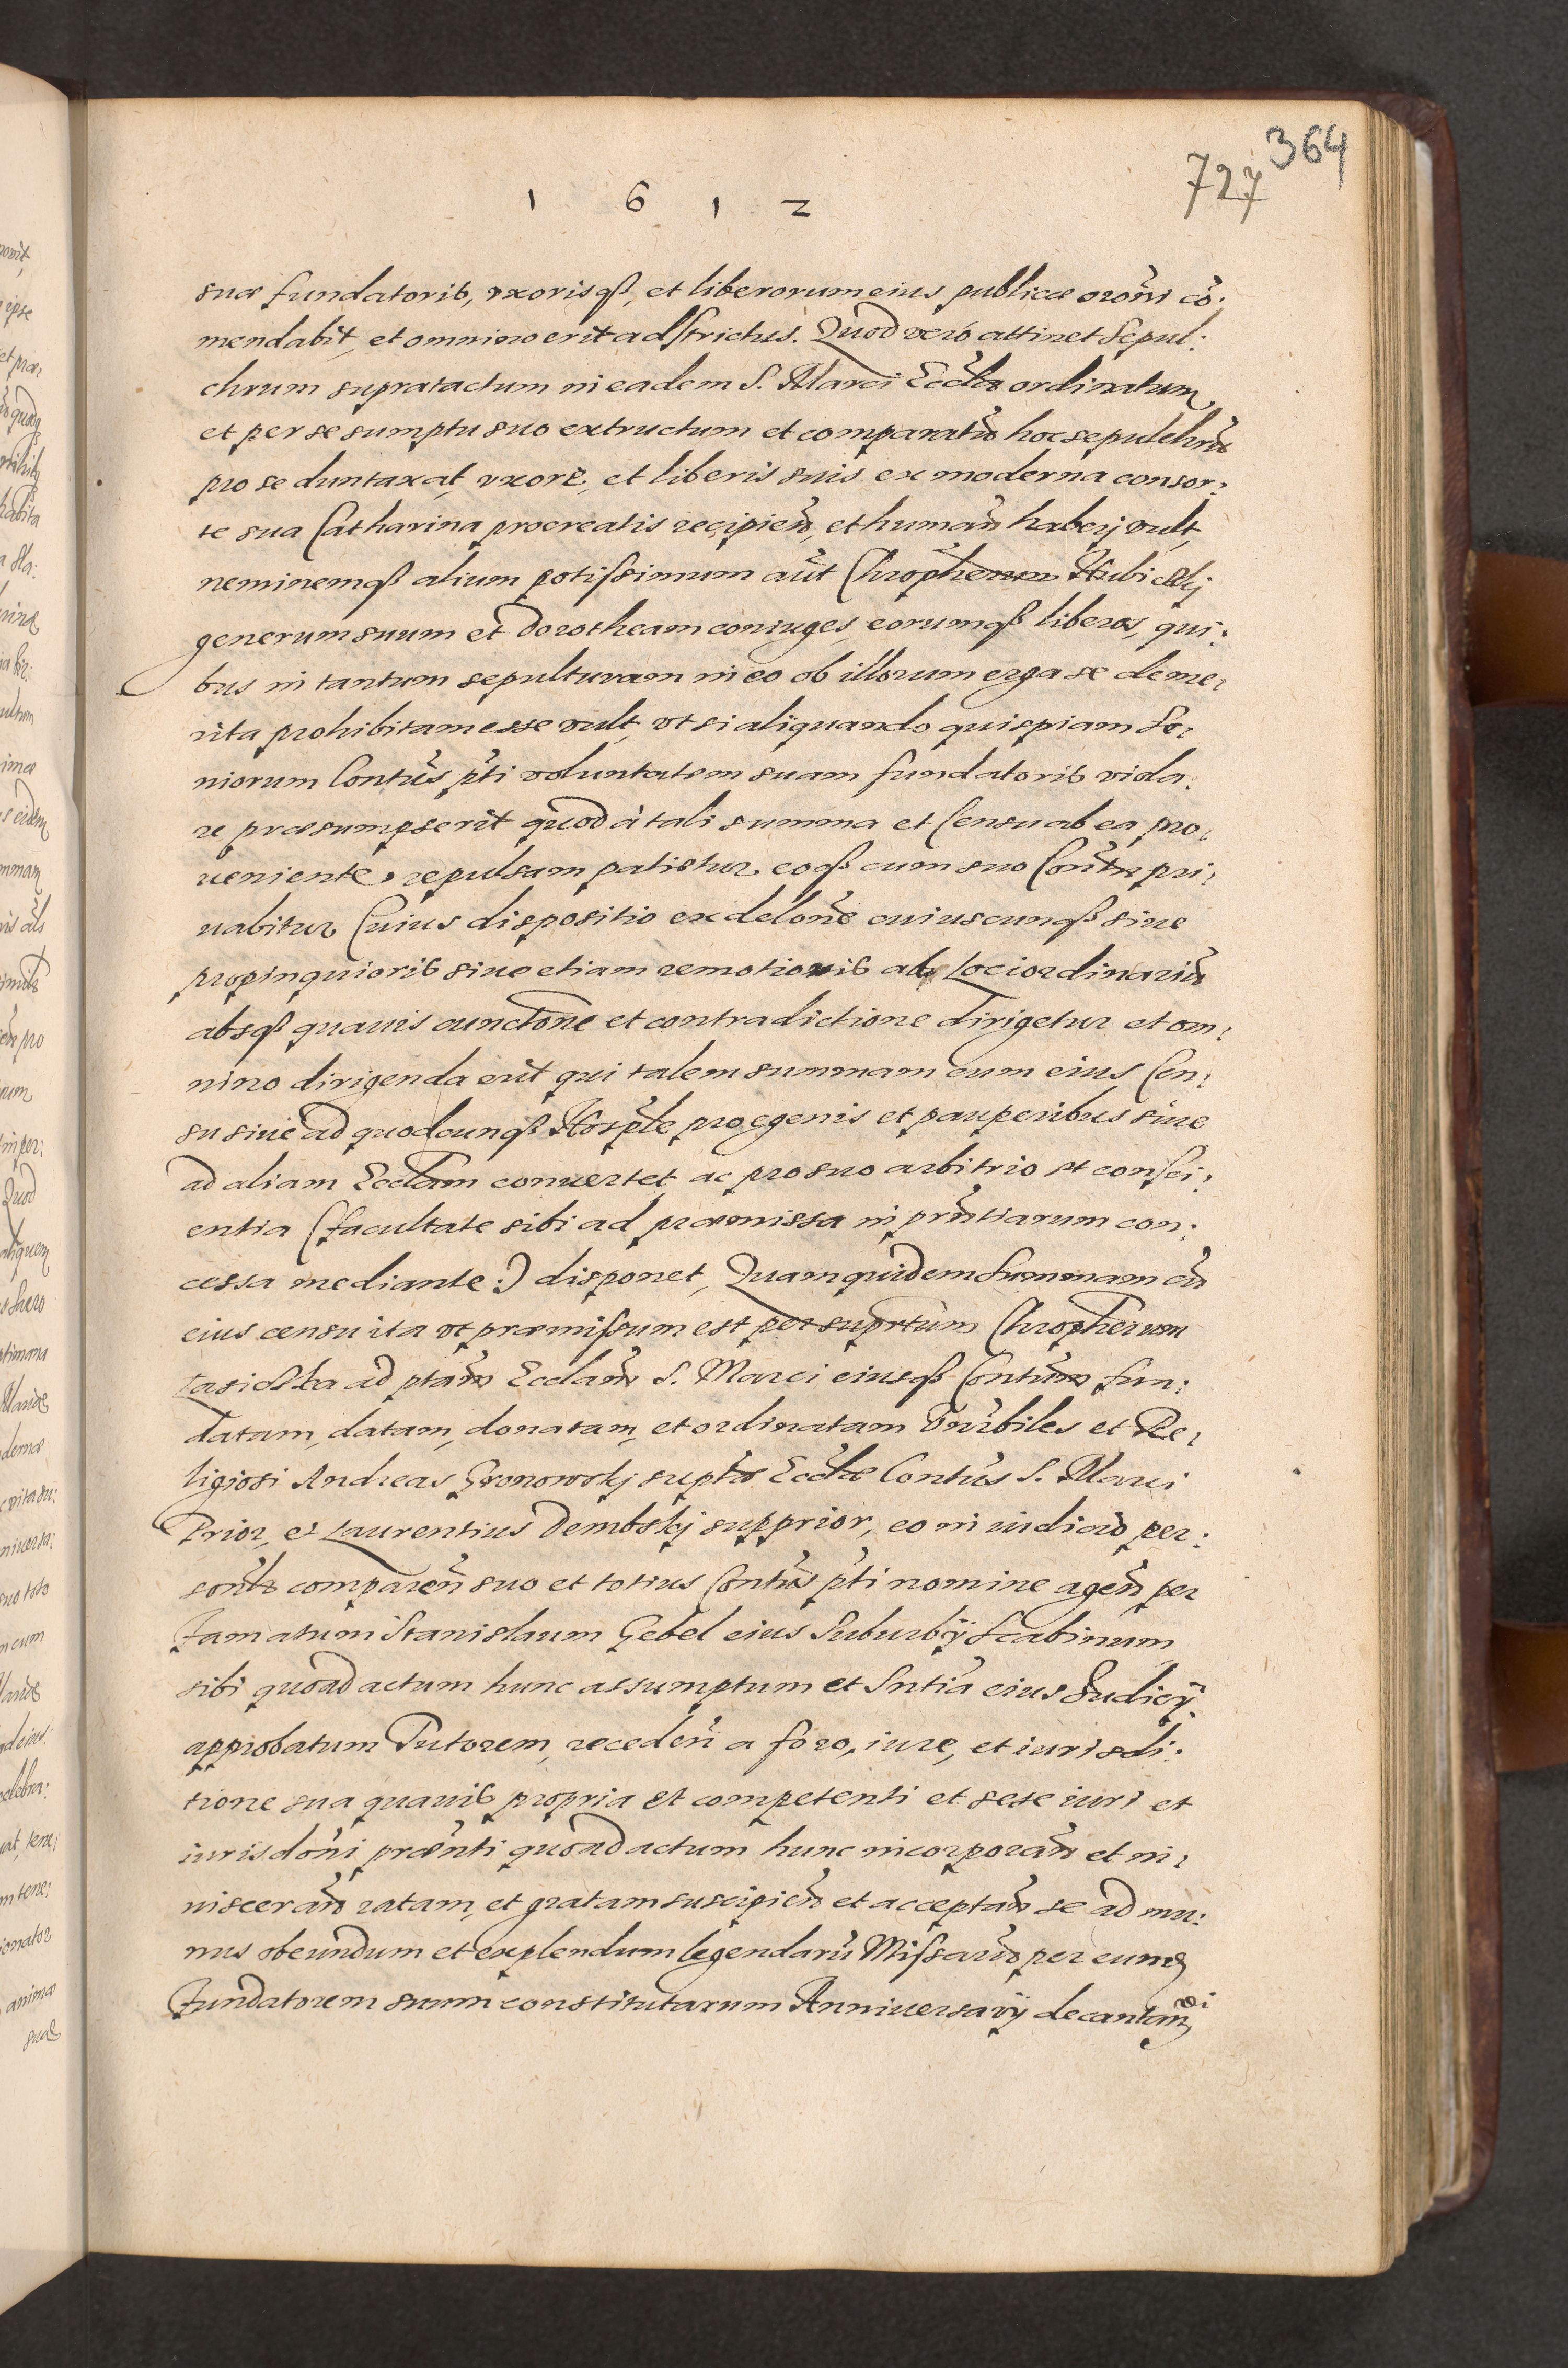 364
727
1 6 1 2
suæ fundatoris, vxorisqß, et liberorum eius publicæ orõni cõ:
mendabit, et omnino erit adstrictus. Quod verò attinet Sepul:
chrum supratactum in eadem S. Marci Eccła ordinatum
et per se sumptu suo extructum et comparatũ hoc sepulchrũ
pro se duntaxat, vxore, et liberis suis ex moderna consor:
te sua Catharina procreatis recipieñ, et humañ haberj vult,
neminemqß alium potissimum aũt Chropherum
generum suum et Dorotheam coniuges, eorumqß liberos, qui:
bus in tantum sepulturam in eo ob illorum erga se deme:
rita prohibitam esse vult, vt si aliquando quispiam Se:
niorum Contũs p̃ti voluntatem suam fundatoris viola:
re præsumpserit quod à tali summa et Censu ab ea pro:
ueniente repulsam patietur, eoqß cum suo Contũ pri:
uabitur Cuius dispositio ex delone cuiuscunqß siue
propinquioris siue etiam remotioris ab Loci ordinariũ
absqß quauis cunctõne et contradictione dirigetur et om:
nino dirigenda erit qui talem summam cum eius Cen:
su siue ad quodcunqß Hospłe pro egenis et pauperibus siue
ad aliam Ecclam conuertet ac pro suo arbitrio et consci:
entia (facultate sibi ad præmissa in prñtiarum con:
cessa mediante:) disponet, Quamquidem Summam cũ
eius censu ita vt præmissum est per suprtum Chropherum
ad ptam Ecclam S. Marci eiusqß Contum fun:
datam, datam, donatam, et ordinatam Vnrbiles et Re:
ligiosi Andreas Gronowskj suptæ Eccłæ Contũs S. Marci
Prior, et Laurentius Dembskj supprior, eo in iudicio per:
sonłr compareñ suo et totius Contũs p̃ti nomine ageñ per
Famatum Stanislaum Gebel eius Suburbÿ Scabinum
sibi quoad actum hunc assumptum et Sntia eius Judicÿ
approbatum Tutorem, recedeñ a foro, iure, et iurisdi:
tione sua quauis propria et competenti et sese iuri et
iurisdõni præñti quoad actum hunc incorporañ et in:
inscerañ ratam, et gratam suscipieñ et acceptañ se ad mu:
nus obeundum et explendum legendarũ Missarũ per eum
Fundatorem suum constitutarum Anniuersarÿ decantandi